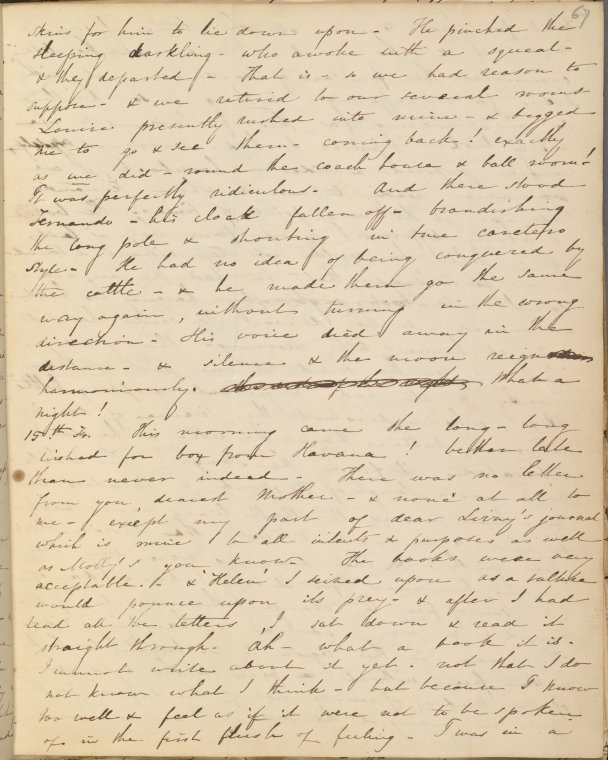 67
skins for him to lie down upon - He pinched the
sleeping darkling - who awoke with a squeal -
& they departed - That is - so we had reason to
suppose - & we retired to our several rooms
Louisa presently rushed into mine - & begged
me to go & see them - coming back! exactly
as we did - round the coach house & ball room!
It was perfectly ridiculous. And there stood
Fernando - his cloak fallen off - brandishing
the long pole & shouting in true caretero
style - He had no idea of being conquered by
the cattle - & he made them go the same
way again, without turning in the wrong
direction - His voice died away in the
distance - & silence & the moon reign
harmoniously. What a
night!
15th Fr. This morning came the long - long
wished for box from Havana! better late
than never indeed - There was no letter
from you, dearest Mother - & none at all to
me - except my part of dear Lizzy's journal
which is mine to all intents & purposes as well
as Molly's you know - The books were very
acceptable - & "Helen" I seized upon as a vulture
would pounce upon its prey - & after I had
read all the letters, I sat down & read it
straight through. Ah - what a book it is.
I cannot write about it yet - not that I do
not know what I think - but because I know
too well & feel as if it were not to be spoken
of in the first flush of feeling - I was in a